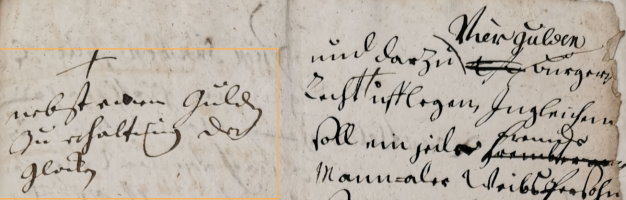 †
nebst einem Gulden
zu erhaltung der
Glocken
Vier gulden
und darzu burger
Recht † ufflegen, Ingleichen
soll ein jeder frembds
Mann= oder Weibs Persohn